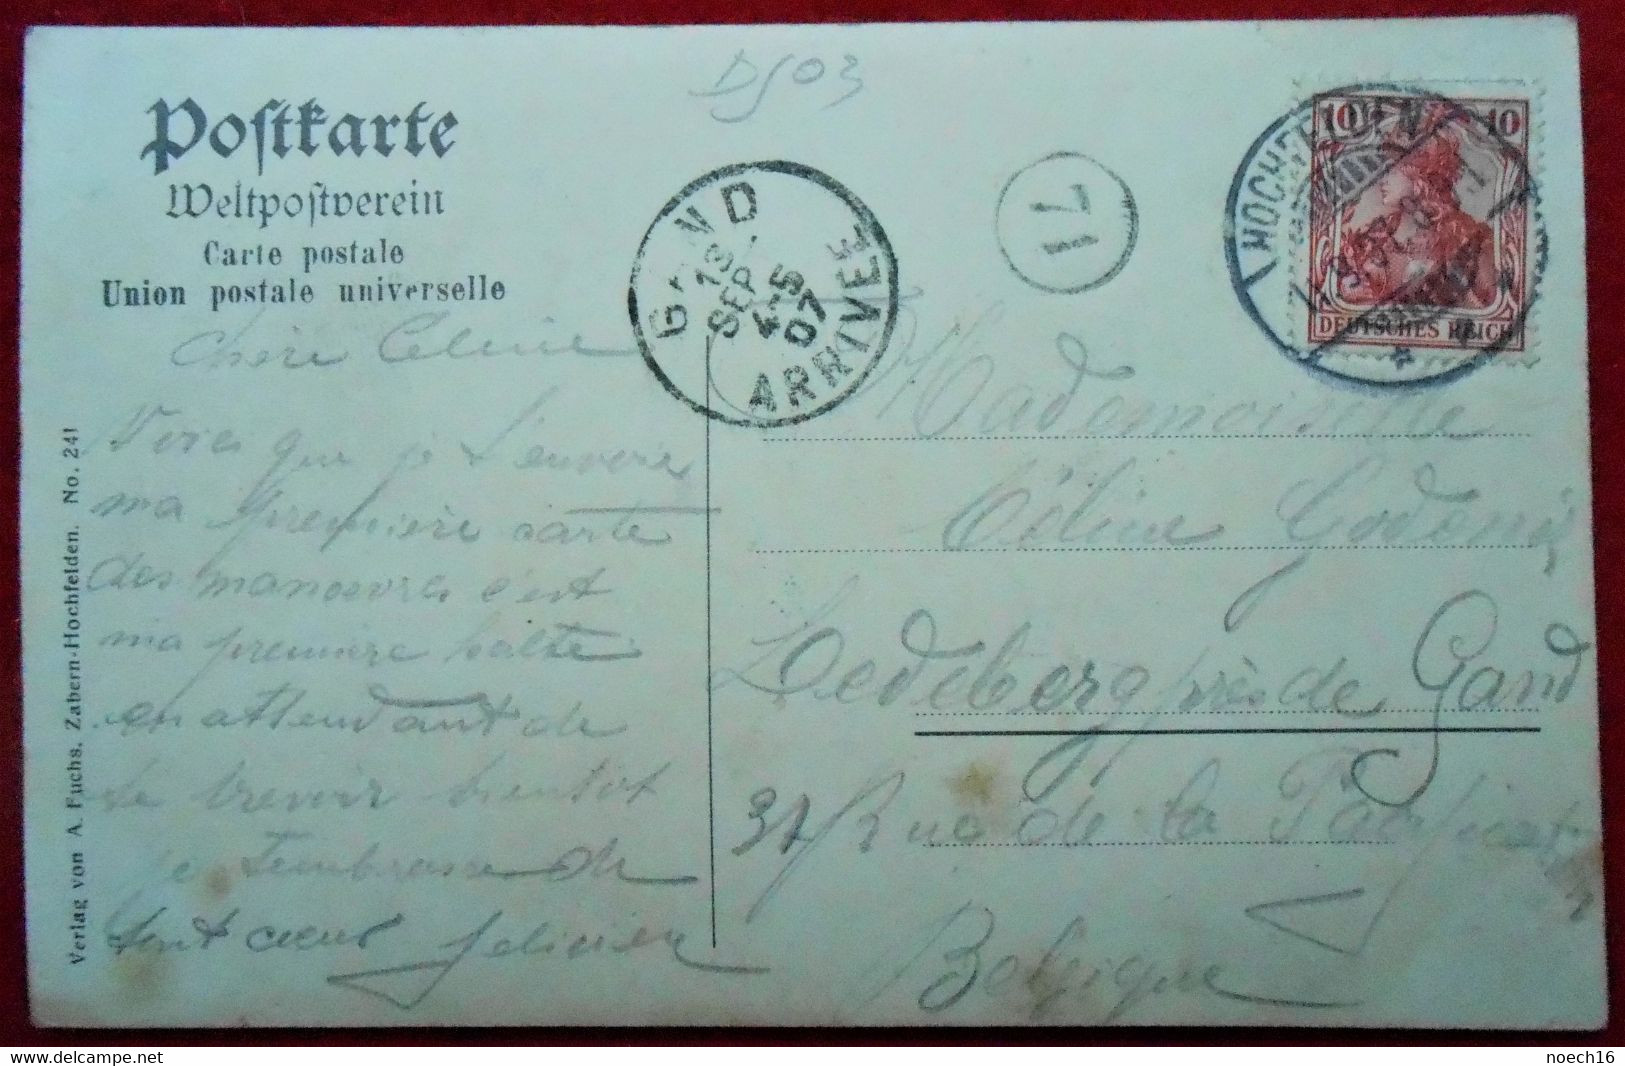 DS03
Postkarte
Weltpostverein
Carte postale
Union postale universelle
GAND
13
SEP
4-5
07
ARRIVÉE
71
HOCHFELDEN
10 10
DEUTSCHES REICH
Verlag von A. Fuchs, Zabern-Hochfelden. No. 241
Chère Celine
que je t'envoie
ma première carte
des manoevres c'est
ma première halte
en attendant de
te revoir bientôt
je t'embrasse de
tout coeur Felicien
Mademoiselle
Céline
Ledeberg près de Gand
37 Rue de la
Belgique
noech16